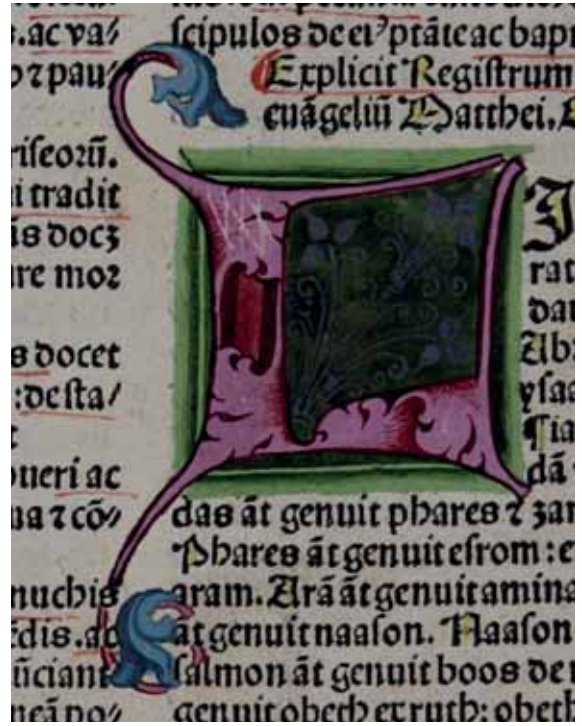 s.ac va⸗
o ⁊ pau⸗
riſeoꝛū.
i tradit
is docꝫ
re moꝛ
s docet
: de ſta⸗
t
pueri ac
na ⁊ cō⸗
nuchis
dis. ac
ūciant
neā po⸗
ſcipulos de eiꝰ ptāte ac bapt
Explicit Regiſtrum
euāgeliū Matthei.
rat
dau
Abꝛ
yſaa
dā
das āt genuit phares ⁊ zar
Phares āt genuit eſrom : e
aram. Arā āt genuit amina
āt genuit naaſon. Naaſon
ſalmon āt genuit boos de r
genuit obeth ex ruth: obeth